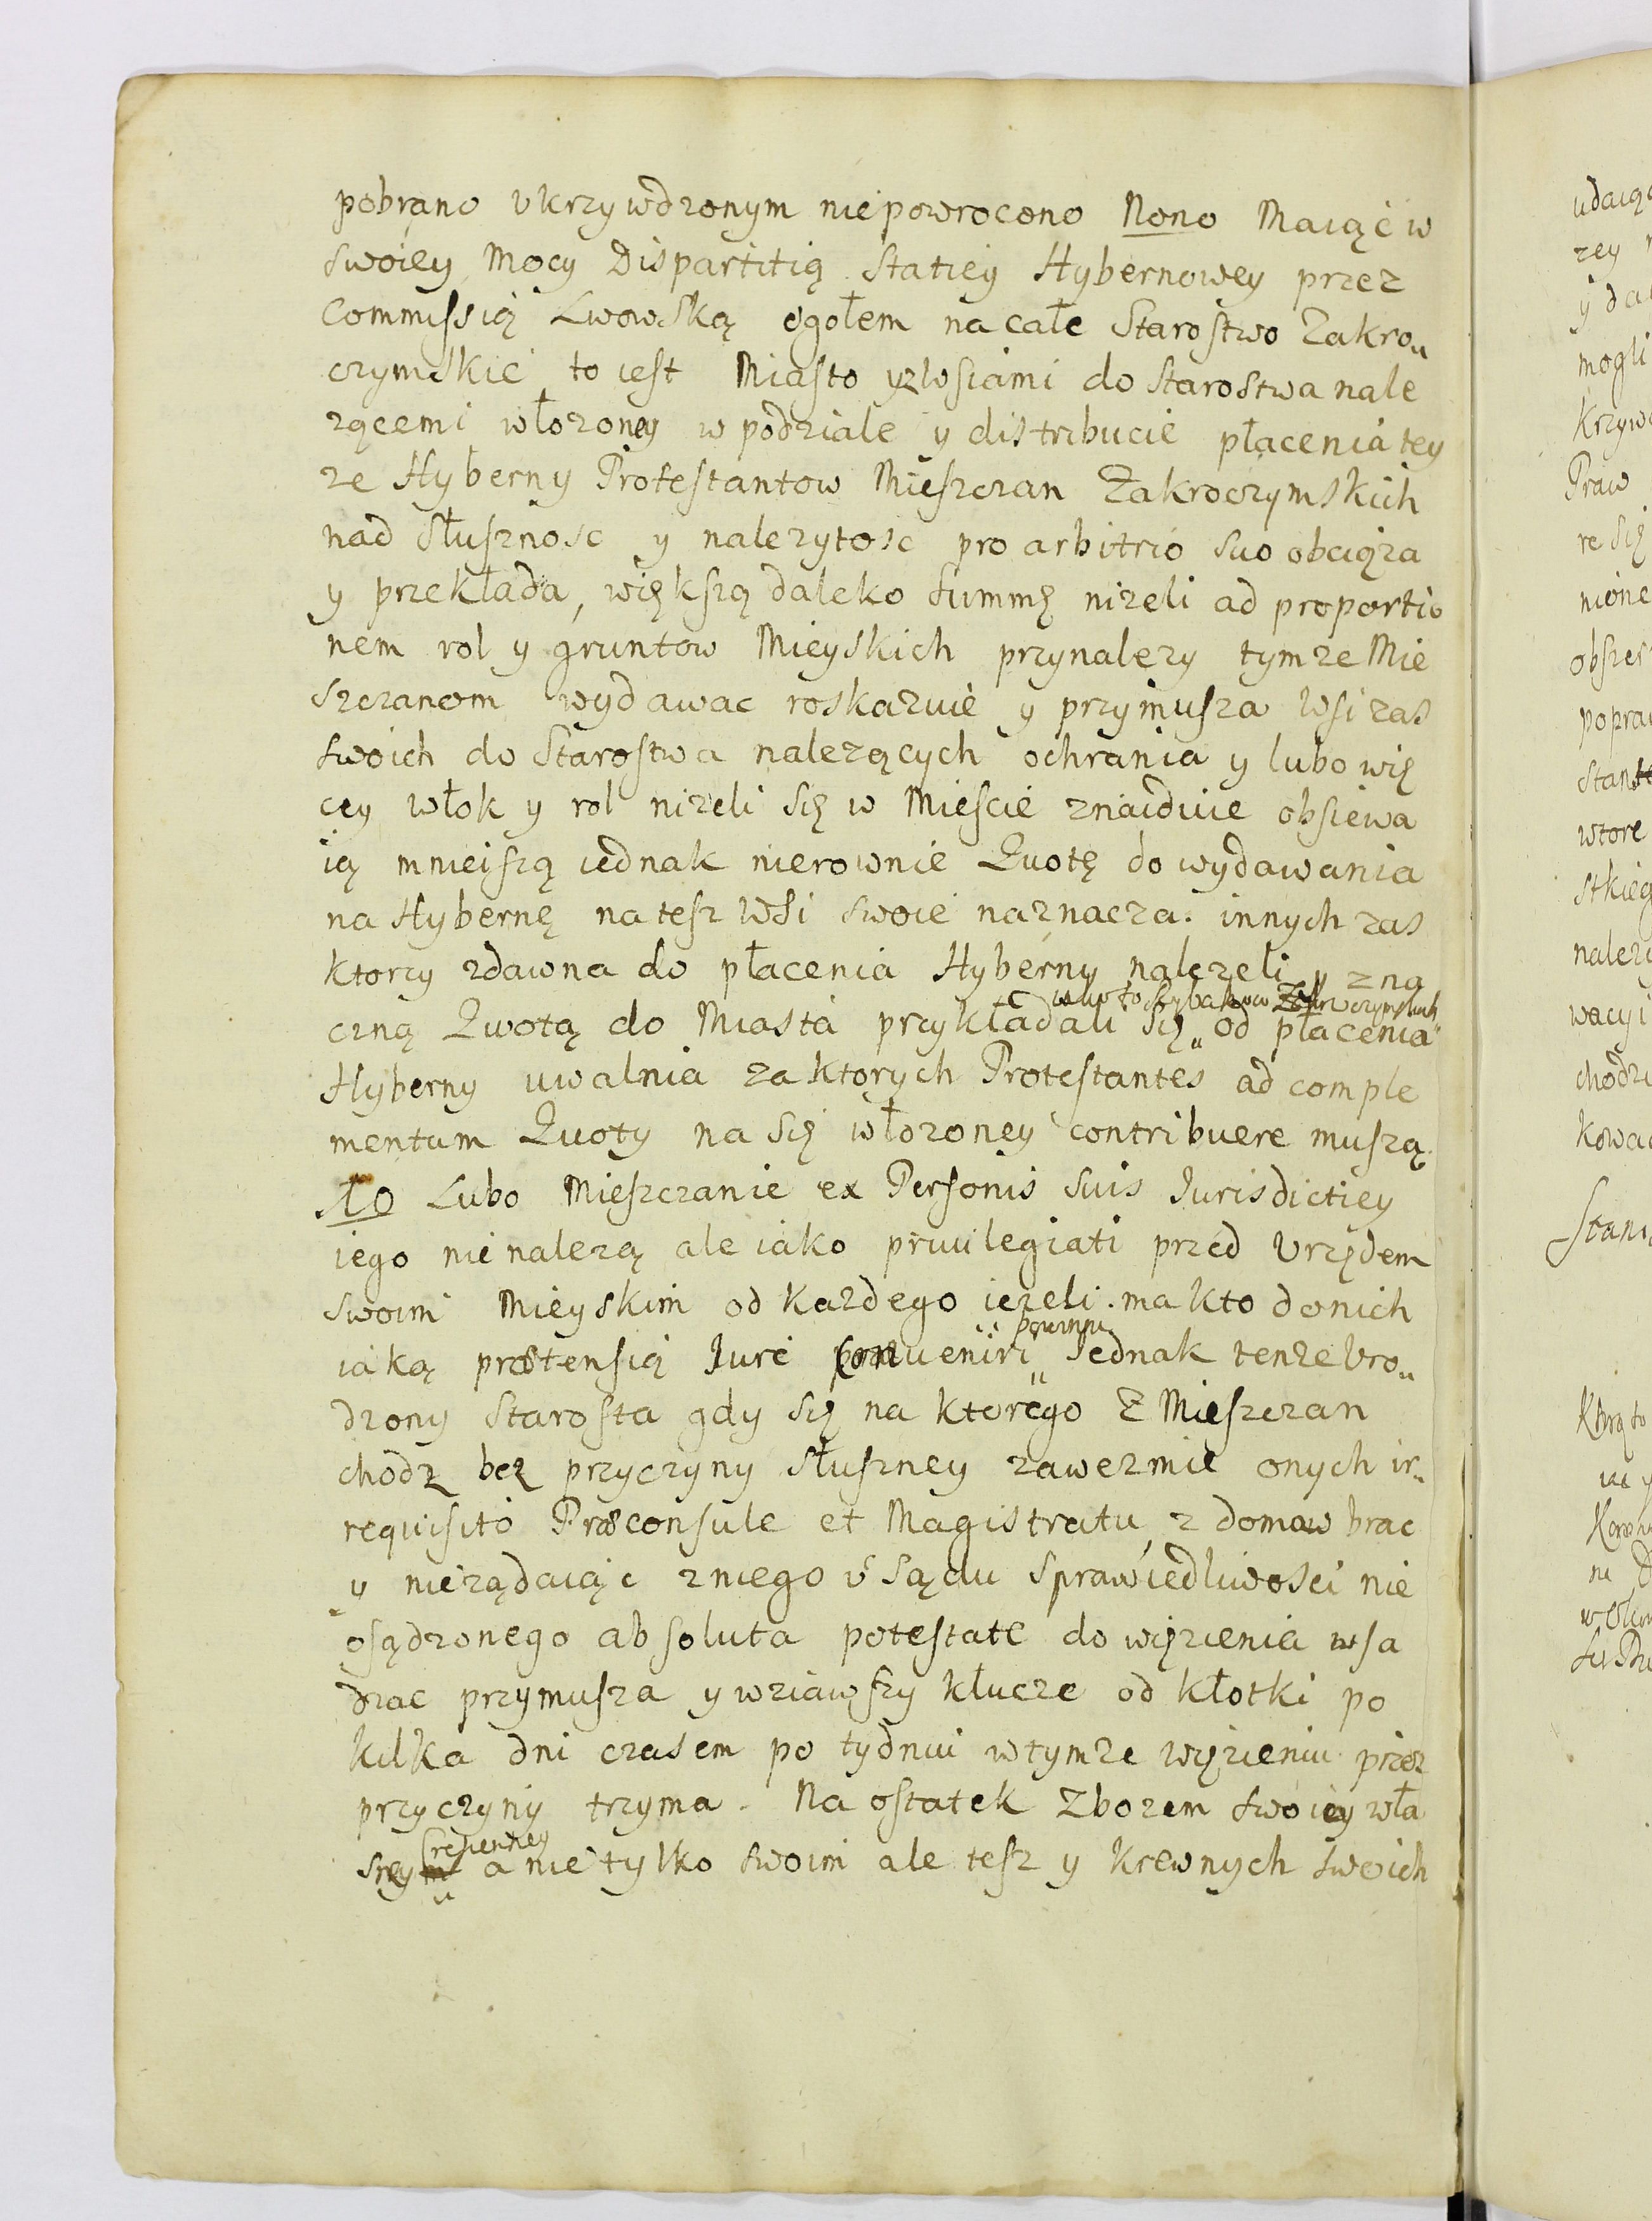 pobrano vkrzywdzonym niepowrocono Nono Maiąc w
swoiey Mocy Dispartitią Statiey Hybernowey przez
Commissią Lwowską ogołem na całe Starostwo Zakro„
czymskie to iest Miasto yzwsiami do Starostwa nale
rzącemi włozoney w podziale y distribucie płacenia tey
ze Hyberny Protestantow Mieszczan Zakroczymskich
nad słusznosc y nalezytosc pro arbitrio suo obciąza
y przekłada, większą daleko summę nizeli ad proportio
nem rol y gruntow Mieyskich przynalezy tymze Mie
szczanom wydawac roskazuie y przymusza Wsi zas
swoich do Starostwa nalezących ochrania y lubo wię
cey włok y rol nizeli się w Miescie znaiduie obsiewa
ią mnieiszą iednak nierownie Quotę do wydawania
na Hybernę na tesz Wsi swoie naznacza. innych zas
ktorzy zdawna do płacenia Hyberny nalezeli y zna
iako to Rybakow Zakroczymskich
czną Quotą do Miasta przykładali się „ od płacenia
Hyberny uwalnia za ktorych Protestantes ad comple
mentum Quoty na się włozoney contribuere muszą.
10 Lubo Mieszczanie ex Personis suis Jurisdictiey
iego nie nalezą ale iako priuilegiati przed Vrzędem
swoim Mieyskim od kazdego iezeli ma kto do nich
powinni
iaką prætensią Jure conueniri „ Jednak tenze Vro„
dzony Starosta gdy się na ktorego z Mieszczan
chodz bez przyczyny słuszney zawezmie onych ir„
requisito Præconsule et Magistratu z domow brac
y nieządaiąc z niego v Sądu sprawiedliwosci nie
osądzonego absoluta potestate do więzienia wsa
dzac przymusza y wziąwszy klucze od kłotki po
kilka dni czasem po tydniu w tymze więzieniu przez
przyczyny trzyma. Na ostatek Zbozem swoiey wła
sney a nie tylko swoim ale tesz y krewnych swoich